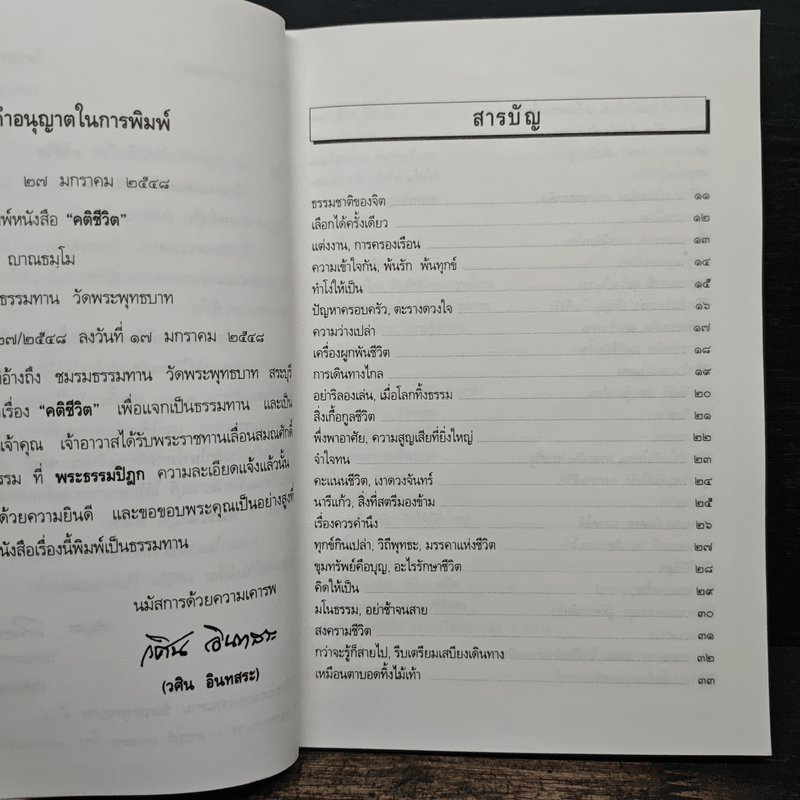 คำอนุญาตในการพิมพ์
๒๗ มกราคม ๒๕๔๘
พิมพ์หนังสือ “คติชีวิต”
ญาณธมฺโม
ธรรมทาน วัดพระพุทธบาท
๒๗/๒๕๔๘ ลงวันที่ ๑๗ มกราคม ๒๕๔๘
อ้างถึง ชมรมธรรมทาน วัดพระพุทธบาท สระบุรี
เรื่อง “คติชีวิต” เพื่อแจกเป็นธรรมทาน และเป็น
เจ้าคุณ เจ้าอาวาสได้รับพระราชทานเลื่อนสมณศักดิ์
ธรรม ที่ พระธรรมปิฎก ความละเอียดแจ้งแล้วนั้น
ด้วยความยินดี และขอขอบพระคุณเป็นอย่างสูงที่
หนังสือเรื่องนี้พิมพ์เป็นธรรมทาน
นมัสการด้วยความเคารพ
วศิน อินทสระ
(วศิน อินทสระ)
สารบัญ
ธรรมชาติของจิต ๑๑
เลือกได้ครั้งเดียว ๑๒
แต่งงาน, การครองเรือน ๑๓
ความเข้าใจกัน, พ้นรัก พ้นทุกข์ ๑๔
ทำโง่ให้เป็น ๑๕
ปัญหาครอบครัว, ตะรางดวงใจ ๑๖
ความว่างเปล่า ๑๗
เครื่องผูกพันชีวิต ๑๘
การเดินทางไกล ๑๙
อย่าริลองเล่น, เมื่อโลกทิ้งธรรม ๒๐
สิ่งเกื้อกูลชีวิต ๒๑
พึ่งพาอาศัย, ความสูญเสียที่ยิ่งใหญ่ ๒๒
จำใจทน ๒๓
คะแนนชีวิต, เงาดวงจันทร์ ๒๔
นารีแก้ว, สิ่งที่สตรีมองข้าม ๒๕
เรื่องควรคำนึง ๒๖
ทุกข์กินเปล่า, วิถีพุทธะ, มรรคาแห่งชีวิต ๒๗
ขุมทรัพย์คือบุญ, อะไรรักษาชีวิต ๒๘
คิดให้เป็น ๒๙
มโนธรรม, อย่าช้าจนสาย ๓๐
สงครามชีวิต ๓๑
กว่าจะรู้ก็สายไป, รีบเตรียมเสบียงเดินทาง ๓๒
เหมือนตาบอดทิ้งไม้เท้า ๓๓